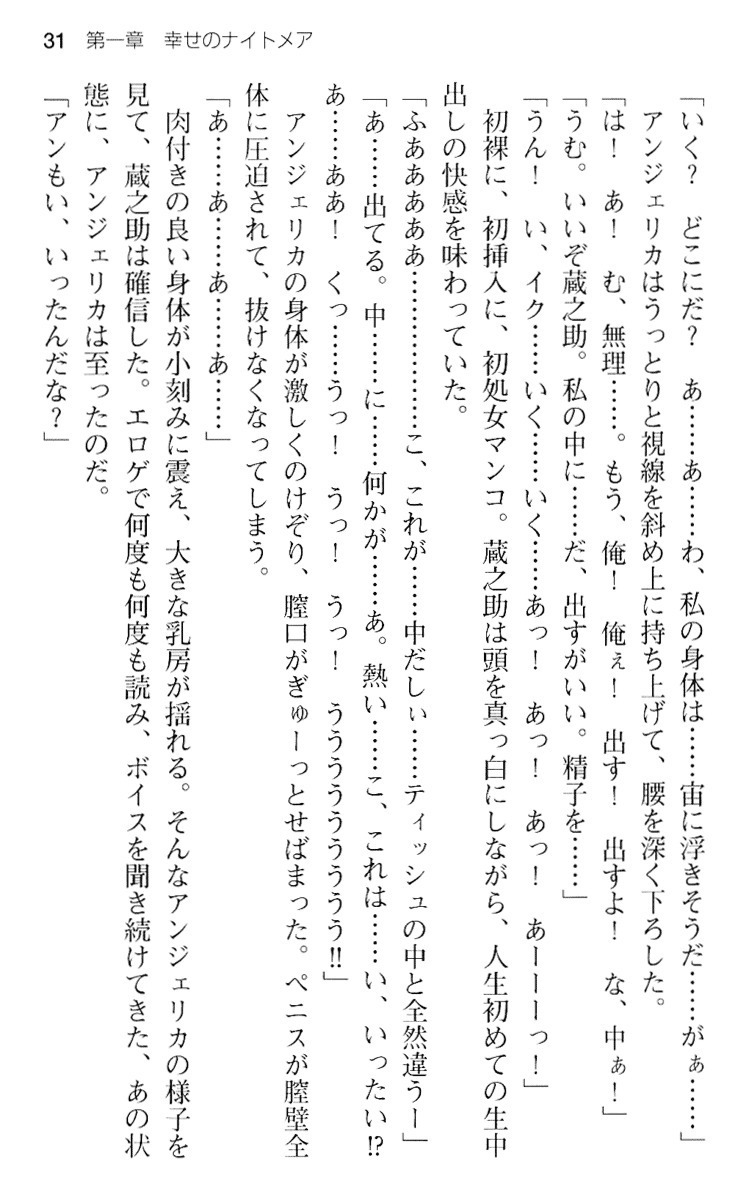 31　第一章　幸せのナイトメア
「いく？　どこにだ？　あ……あ……わ、私の身体は……宙に浮きそうだ……がぁ……」
　アンジェリカはうっとりと視線を斜め上に持ち上げて、腰を深く下ろした。
「は！　あ！　む、無理……。もう、俺！　俺ぇ！　出す！　出すよ！　な、中ぁ！」
「うむ。いいぞ蔵之助。私の中に……だ、出すがいい。精子を……」
「うん！　い、イク……いく……いく……あっ！　あっ！　あっ！　あーーーっ！」
　初裸に、初挿入に、初処女マンコ。蔵之助は頭を真っ白にしながら、人生初めての生中
出しの快感を味わっていた。
「ふああああああ………………こ、これが……中だしぃ……ティッシュの中と全然違うー」
「あ……出てる。中……に……何かが……あ。熱い……こ、これは……い、いったい!?
あ……ああ！　くっ……うっ！　うっ！　うっ！　うううううううう!!」
　アンジェリカの身体が激しくのけぞり、膣口がぎゅーっとせばまった。ペニスが膣壁全
体に圧迫されて、抜けなくなってしまう。
「あ……あ……あ……あ……」
　肉付きの良い身体が小刻みに震え、大きな乳房が揺れる。そんなアンジェリカの様子を
見て、蔵之助は確信した。エロゲで何度も何度も読み、ボイスを聞き続けてきた、あの状
態に、アンジェリカは至ったのだ。
「アンもい、いったんだな？」